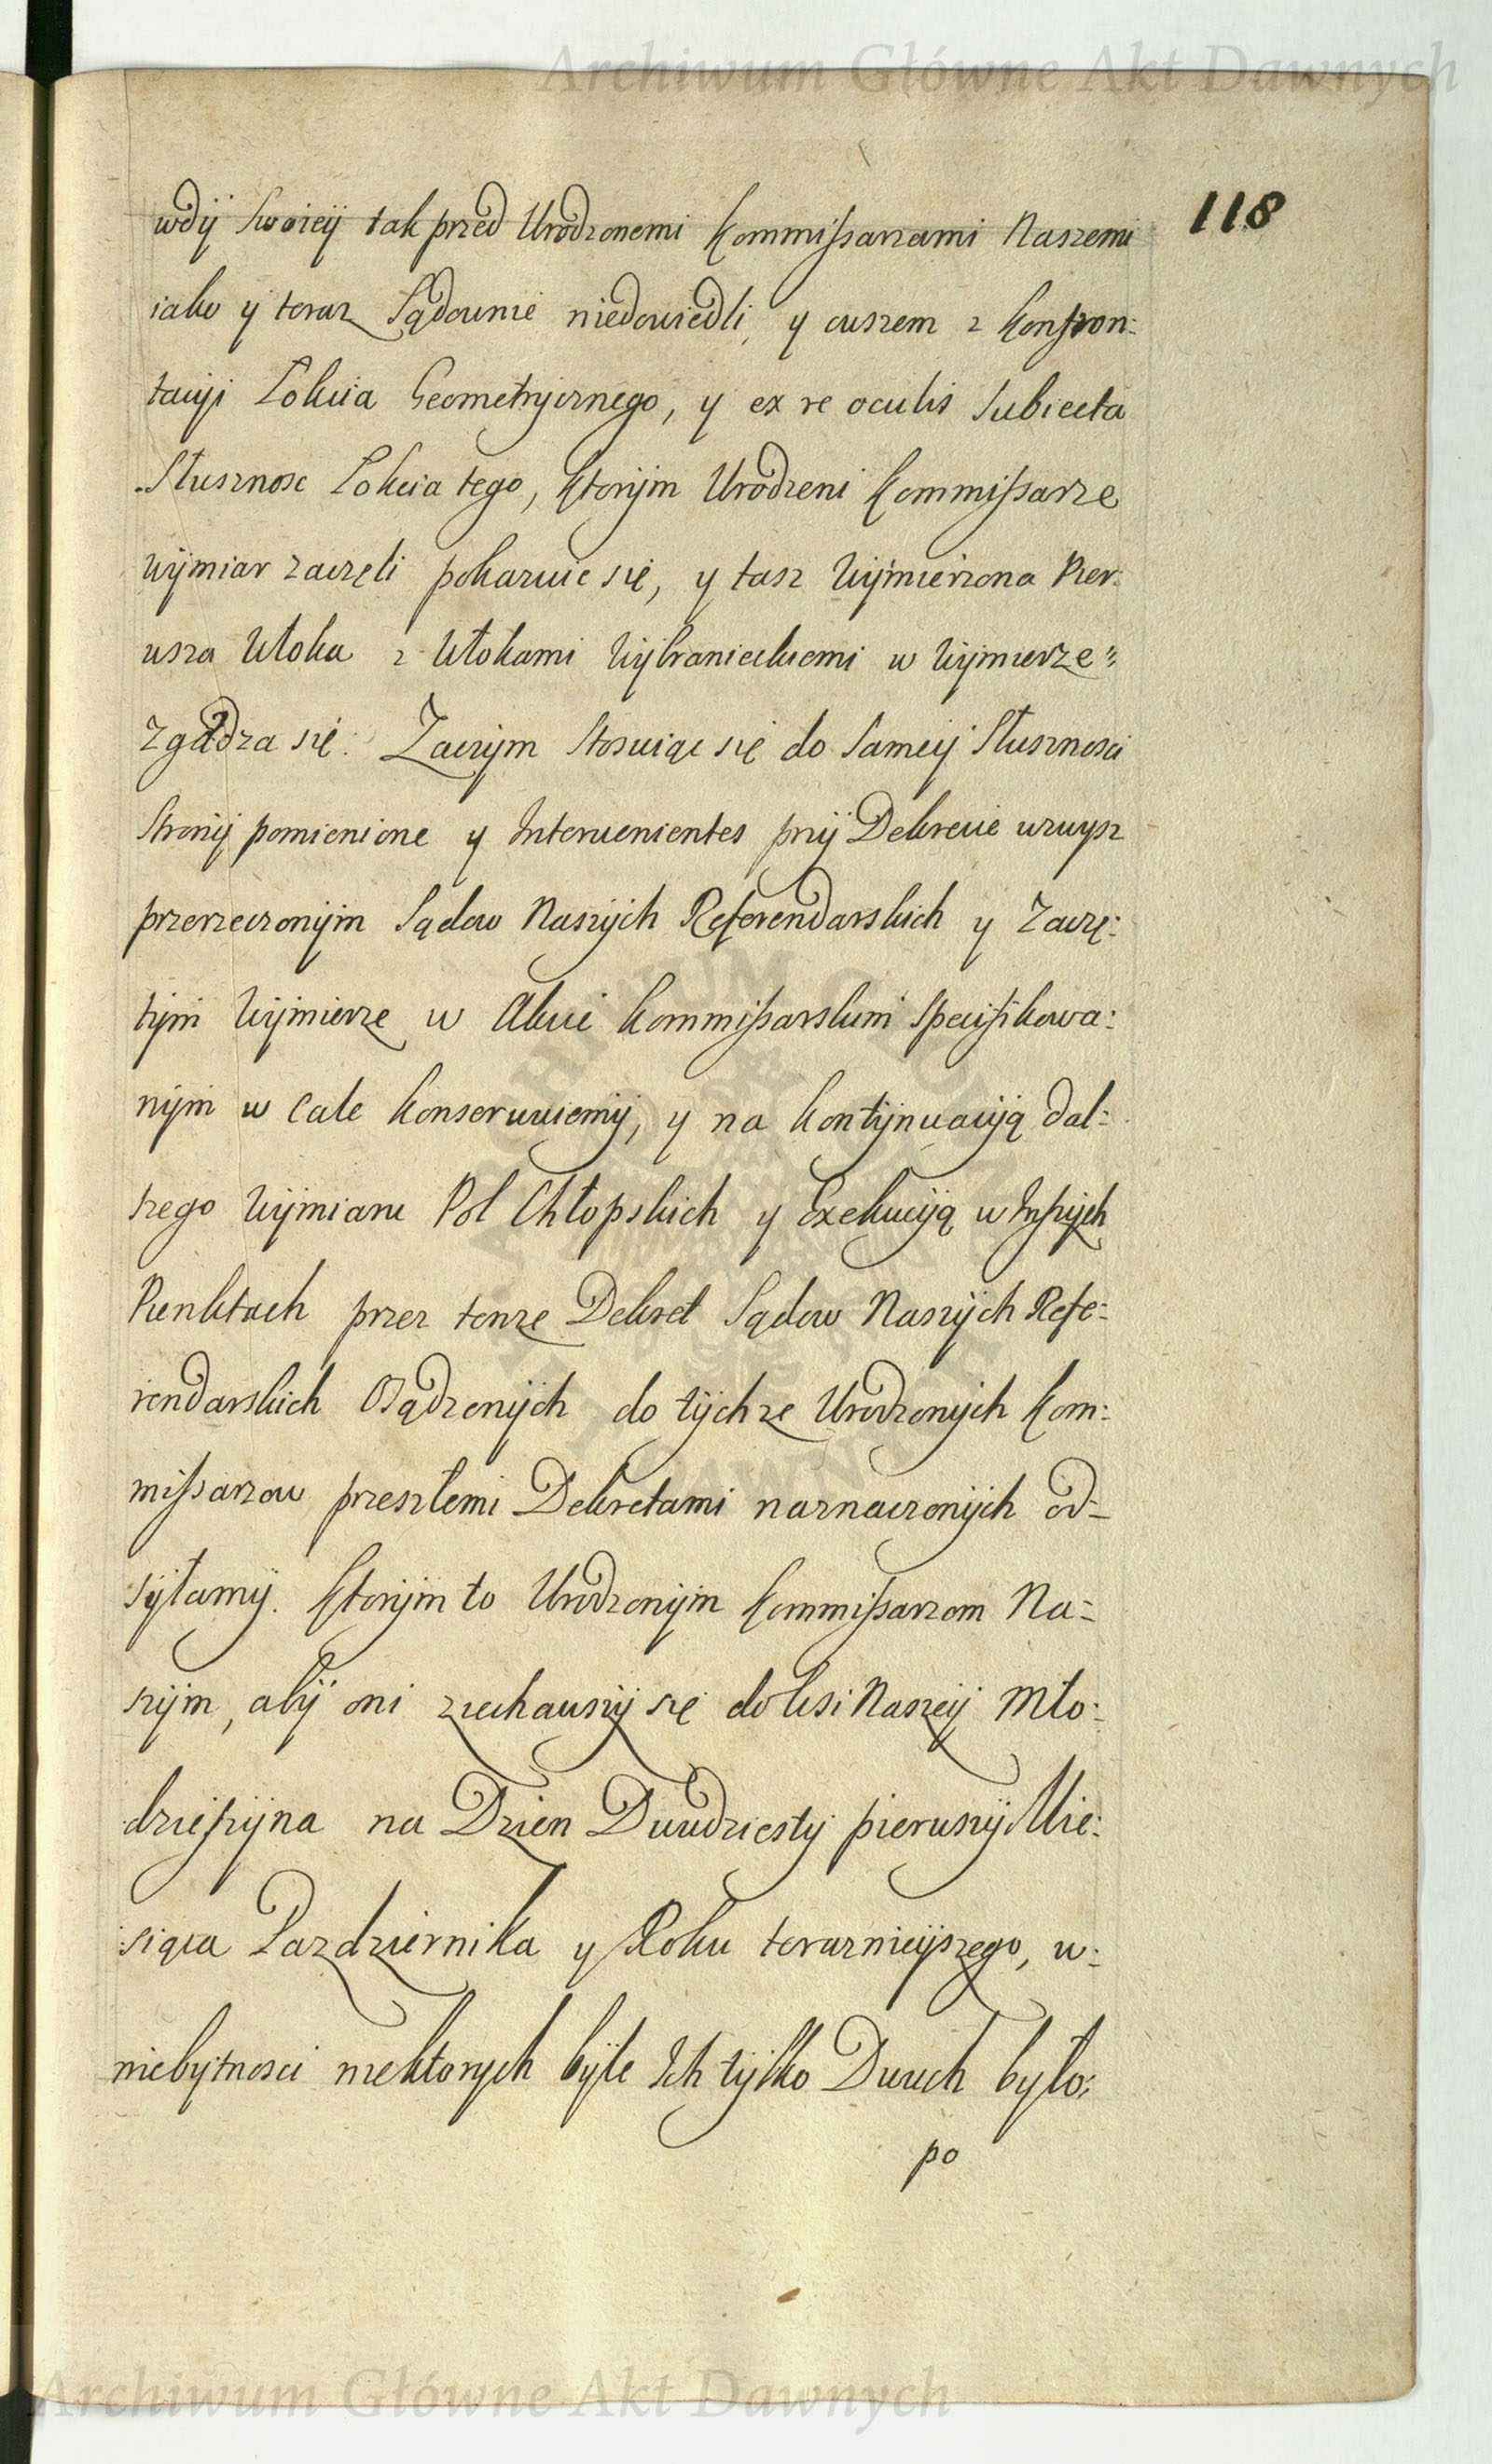 Archiwum Główne Akt Dawnych
118
wdÿ Swoieÿ tak przed Urodzonemi Kommissarzami Naszemi
iako y teraz Sądownie niedowiedli, y owszem z Konfron:
tacÿi Łokcia Geometrÿcznego, y ex re oculis Subiecta
Słusznosc Łokcia tego, ktorÿm Urodzeni Kommissarze
wÿmiar zaczęli pokazuie się, y tasz wÿmierzona Pier:
wsza Włoka z Włokami Wÿbranieckiemi w Wÿmierze
zgadza się. Zaczÿm Stosuiąc się do Sameÿ Słusznosci
Stronÿ pomienione y Intervenientes przÿ Dekrecie wzwysz
przerzeczonÿm Sądow Naszÿch Referendarskich y Zaczę:
tÿm Wÿmierze w Akcie Kommissarskim Specifikowa:
nÿm w cale Konserwuiemÿ, y na kontÿnuacÿą dal:
szego Wÿmiaru Pol Chłopskich y Exekucÿą w Inszÿch
Punktach przez tenze Dekret Sądow Naszÿch Refe:
rendarskich Osądzonÿch do tÿchze Urodzonÿch Kom:
missarzow przeszłemi Dekretami naznaczonÿch od:
sÿłamÿ. Ktorÿm to Urodzonÿm Kommissarzom Na:
szÿm, abÿ oni ziechawszÿ się do Wsi Naszeÿ Mło:
dzieszÿna na Dzien Dwudziestÿ pierwszÿ Mie:
siąca Pazdziernika y Roku teraznieÿszego, w:
niebÿtnosci niektorych bÿle Ich tÿlko Dwuch było:
po
Archiwum Główne Akt Dawnych